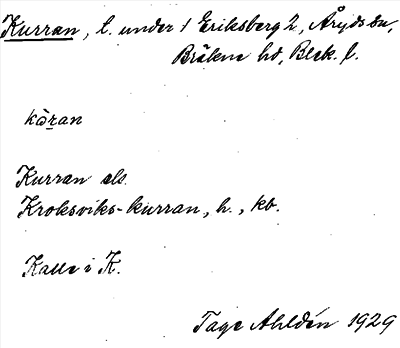 Kurran, t. under 1 Eriksberg 2, Åryds sn,
Bräkne hd, Blek. l.
kòran
Kurran els.
Kroksviks-kurran, h., kb.
Kalle i K.
Tage Ahldén 1929